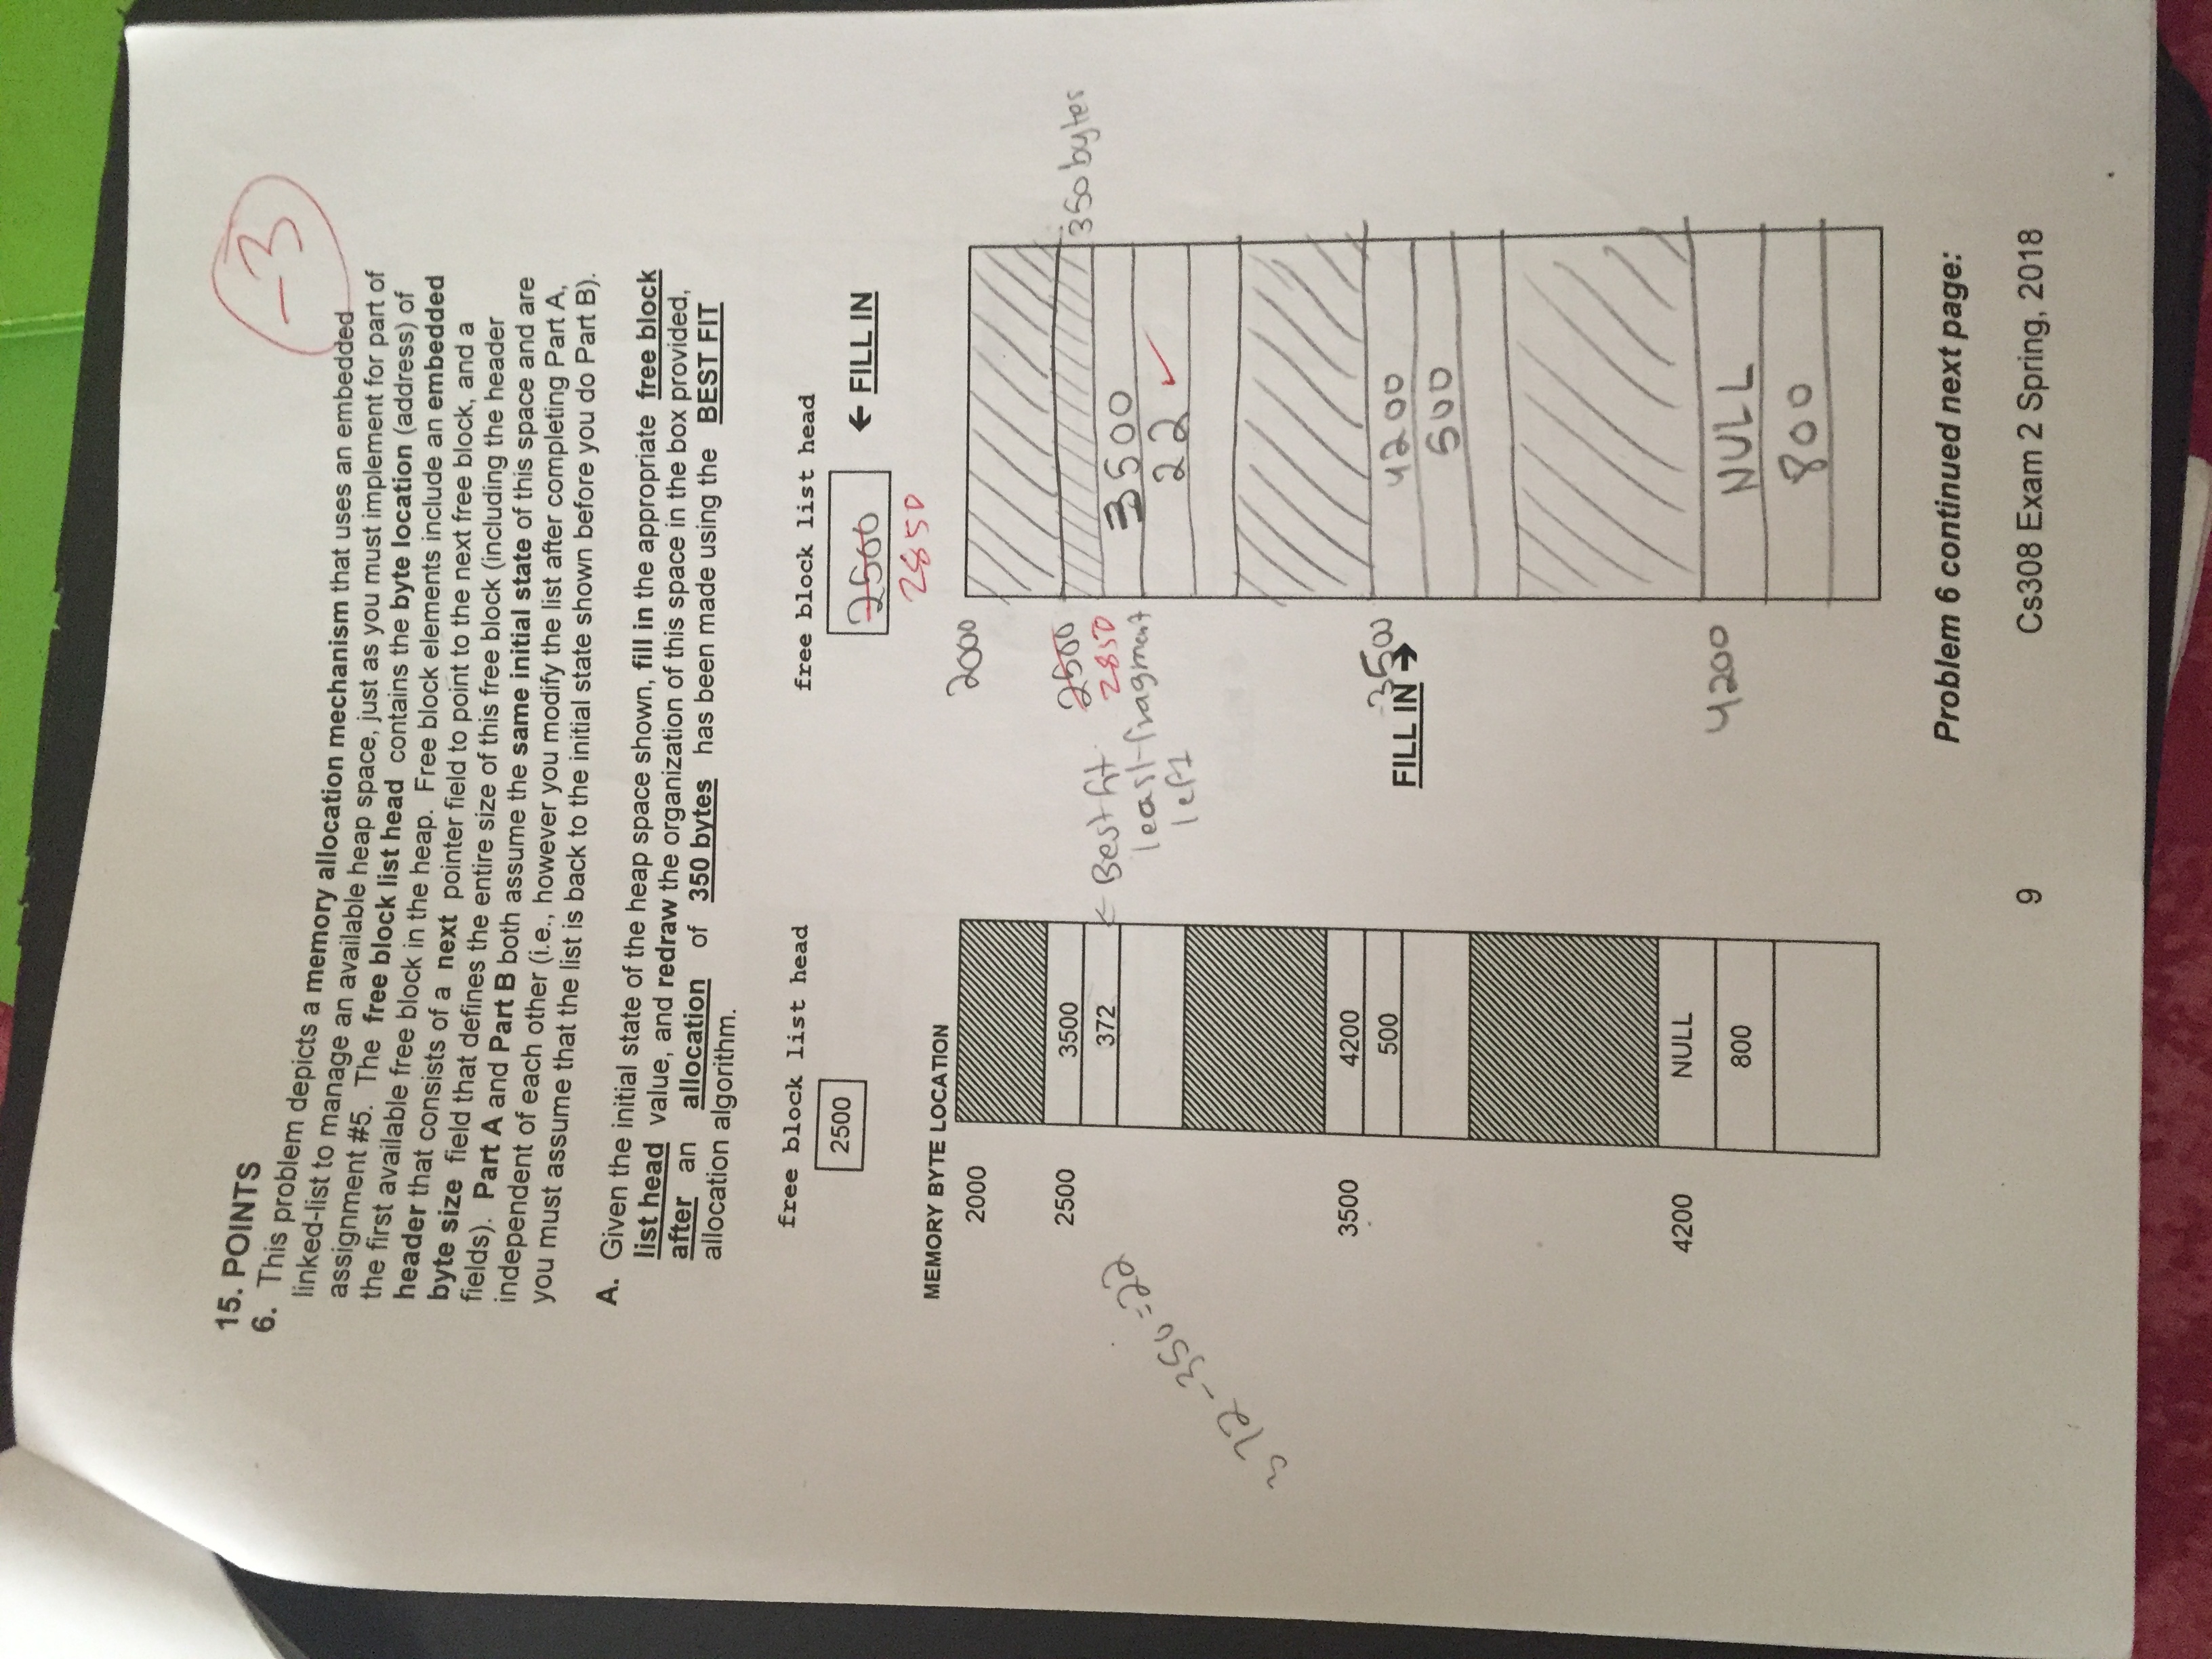 -3
15. POINTS
6. This problem depicts a memory allocation mechanism that uses an embedded
linked-list to manage an available heap space, just as you must implement for part of
assignment #5. The free block list head contains the byte location (address) of
the first available free block in the heap. Free block elements include an embedded
header that consists of a next pointer field to point to the next free block, and a
byte size field that defines the entire size of this free block (including the header
fields). Part A and Part B both assume the same initial state of this space and are
independent of each other (i.e., however you modify the list after completing Part A,
you must assume that the list is back to the initial state shown before you do Part B).
A. Given the initial state of the heap space shown, fill in the appropriate free block
list head value, and redraw the organization of this space in the box provided,
after an allocation of 350 bytes has been made using the BEST FIT
allocation algorithm.
free block list head
2500
MEMORY BYTE LOCATION
2000
2500
3500
372
3500
4200
500
4200
NULL
800
372-350=22
← Best fit
least fragment
left
free block list head
2500
← FILL IN
2850
2000
2500
350 bytes
2850
3500
22 ✓
3500
FILL IN →
4200
500
4200
NULL
800
Problem 6 continued next page:
9
Cs308 Exam 2 Spring, 2018